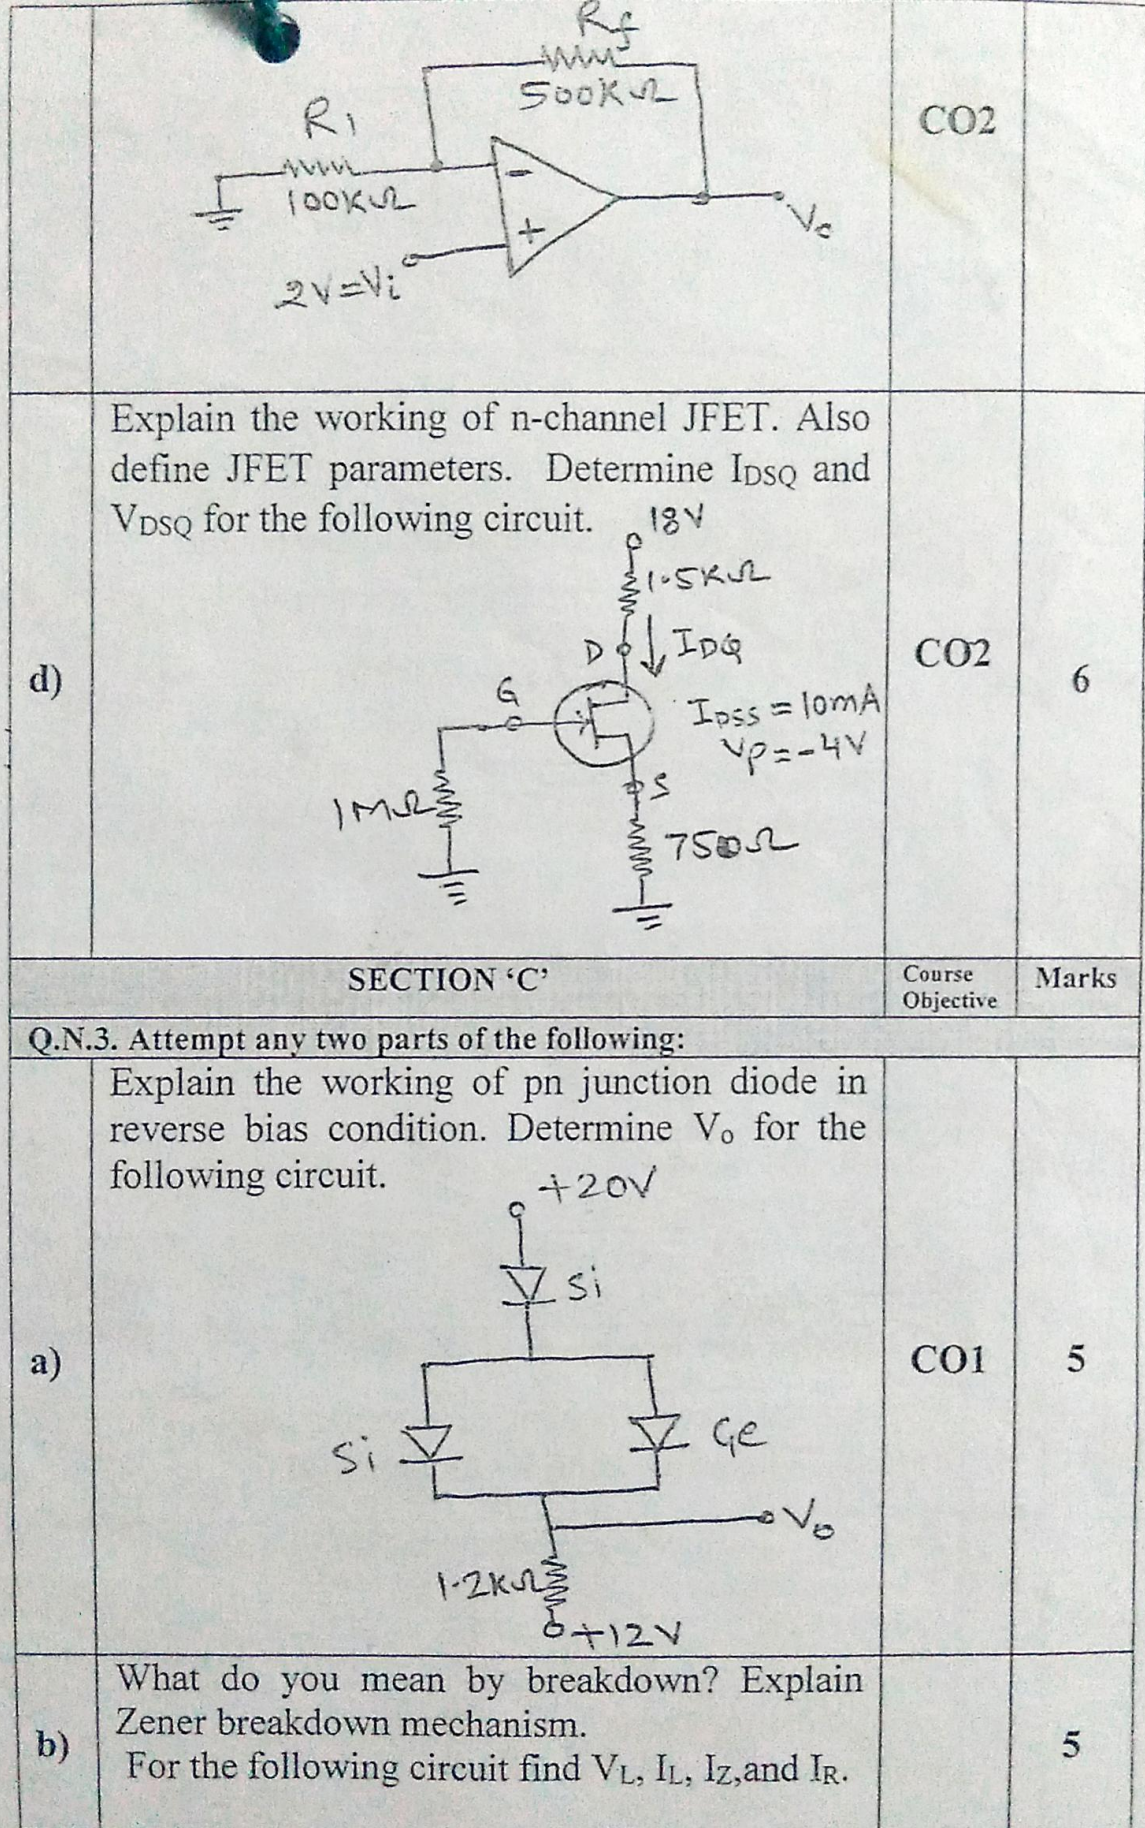 Rf
500KΩ
R1
CO2
100KΩ
-
+
Vo
2V=Vi
Explain the working of n-channel JFET. Also
define JFET parameters. Determine IDSQ and
VDSQ for the following circuit.
18V
1.5KΩ
D
IDQ
CO2
d)
6
G
IDSS = 10mA
Vp=-4V
S
1MΩ
750Ω
SECTION ‘C’
Course Objective
Marks
Q.N.3. Attempt any two parts of the following:
Explain the working of pn junction diode in
reverse bias condition. Determine Vo for the
following circuit.
+20V
Si
a)
CO1
5
Si
Ge
Vo
1.2KΩ
+12V
What do you mean by breakdown? Explain
Zener breakdown mechanism.
b)
5
For the following circuit find VL, IL, IZ,and IR.